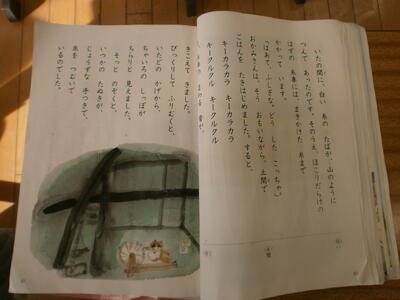 いたの間に、白い 糸の たばが、山のように
つんで あったのです。そのうえ、ほこりだらけの
はずの 糸車には、まきかけた 糸まで
かかって います。
「はあて、ふしぎな。どう した こっちゃ。」
おかみさんは、そう おもいながら、土間で
ごはんを たきはじめました。すると、
キーカラカラ キーカラカラ
キークルクル キークルクル
と、糸車の まわる 音が、
きこえて きました。
びっくりして ふりむくと、
いたどの かげから、
ちゃいろの しっぽが
ちらりと 見えました。
そっと のぞくと、
いつかの たぬきが、
じょうずな 手つきで、
糸を つむいで
いるのでした。